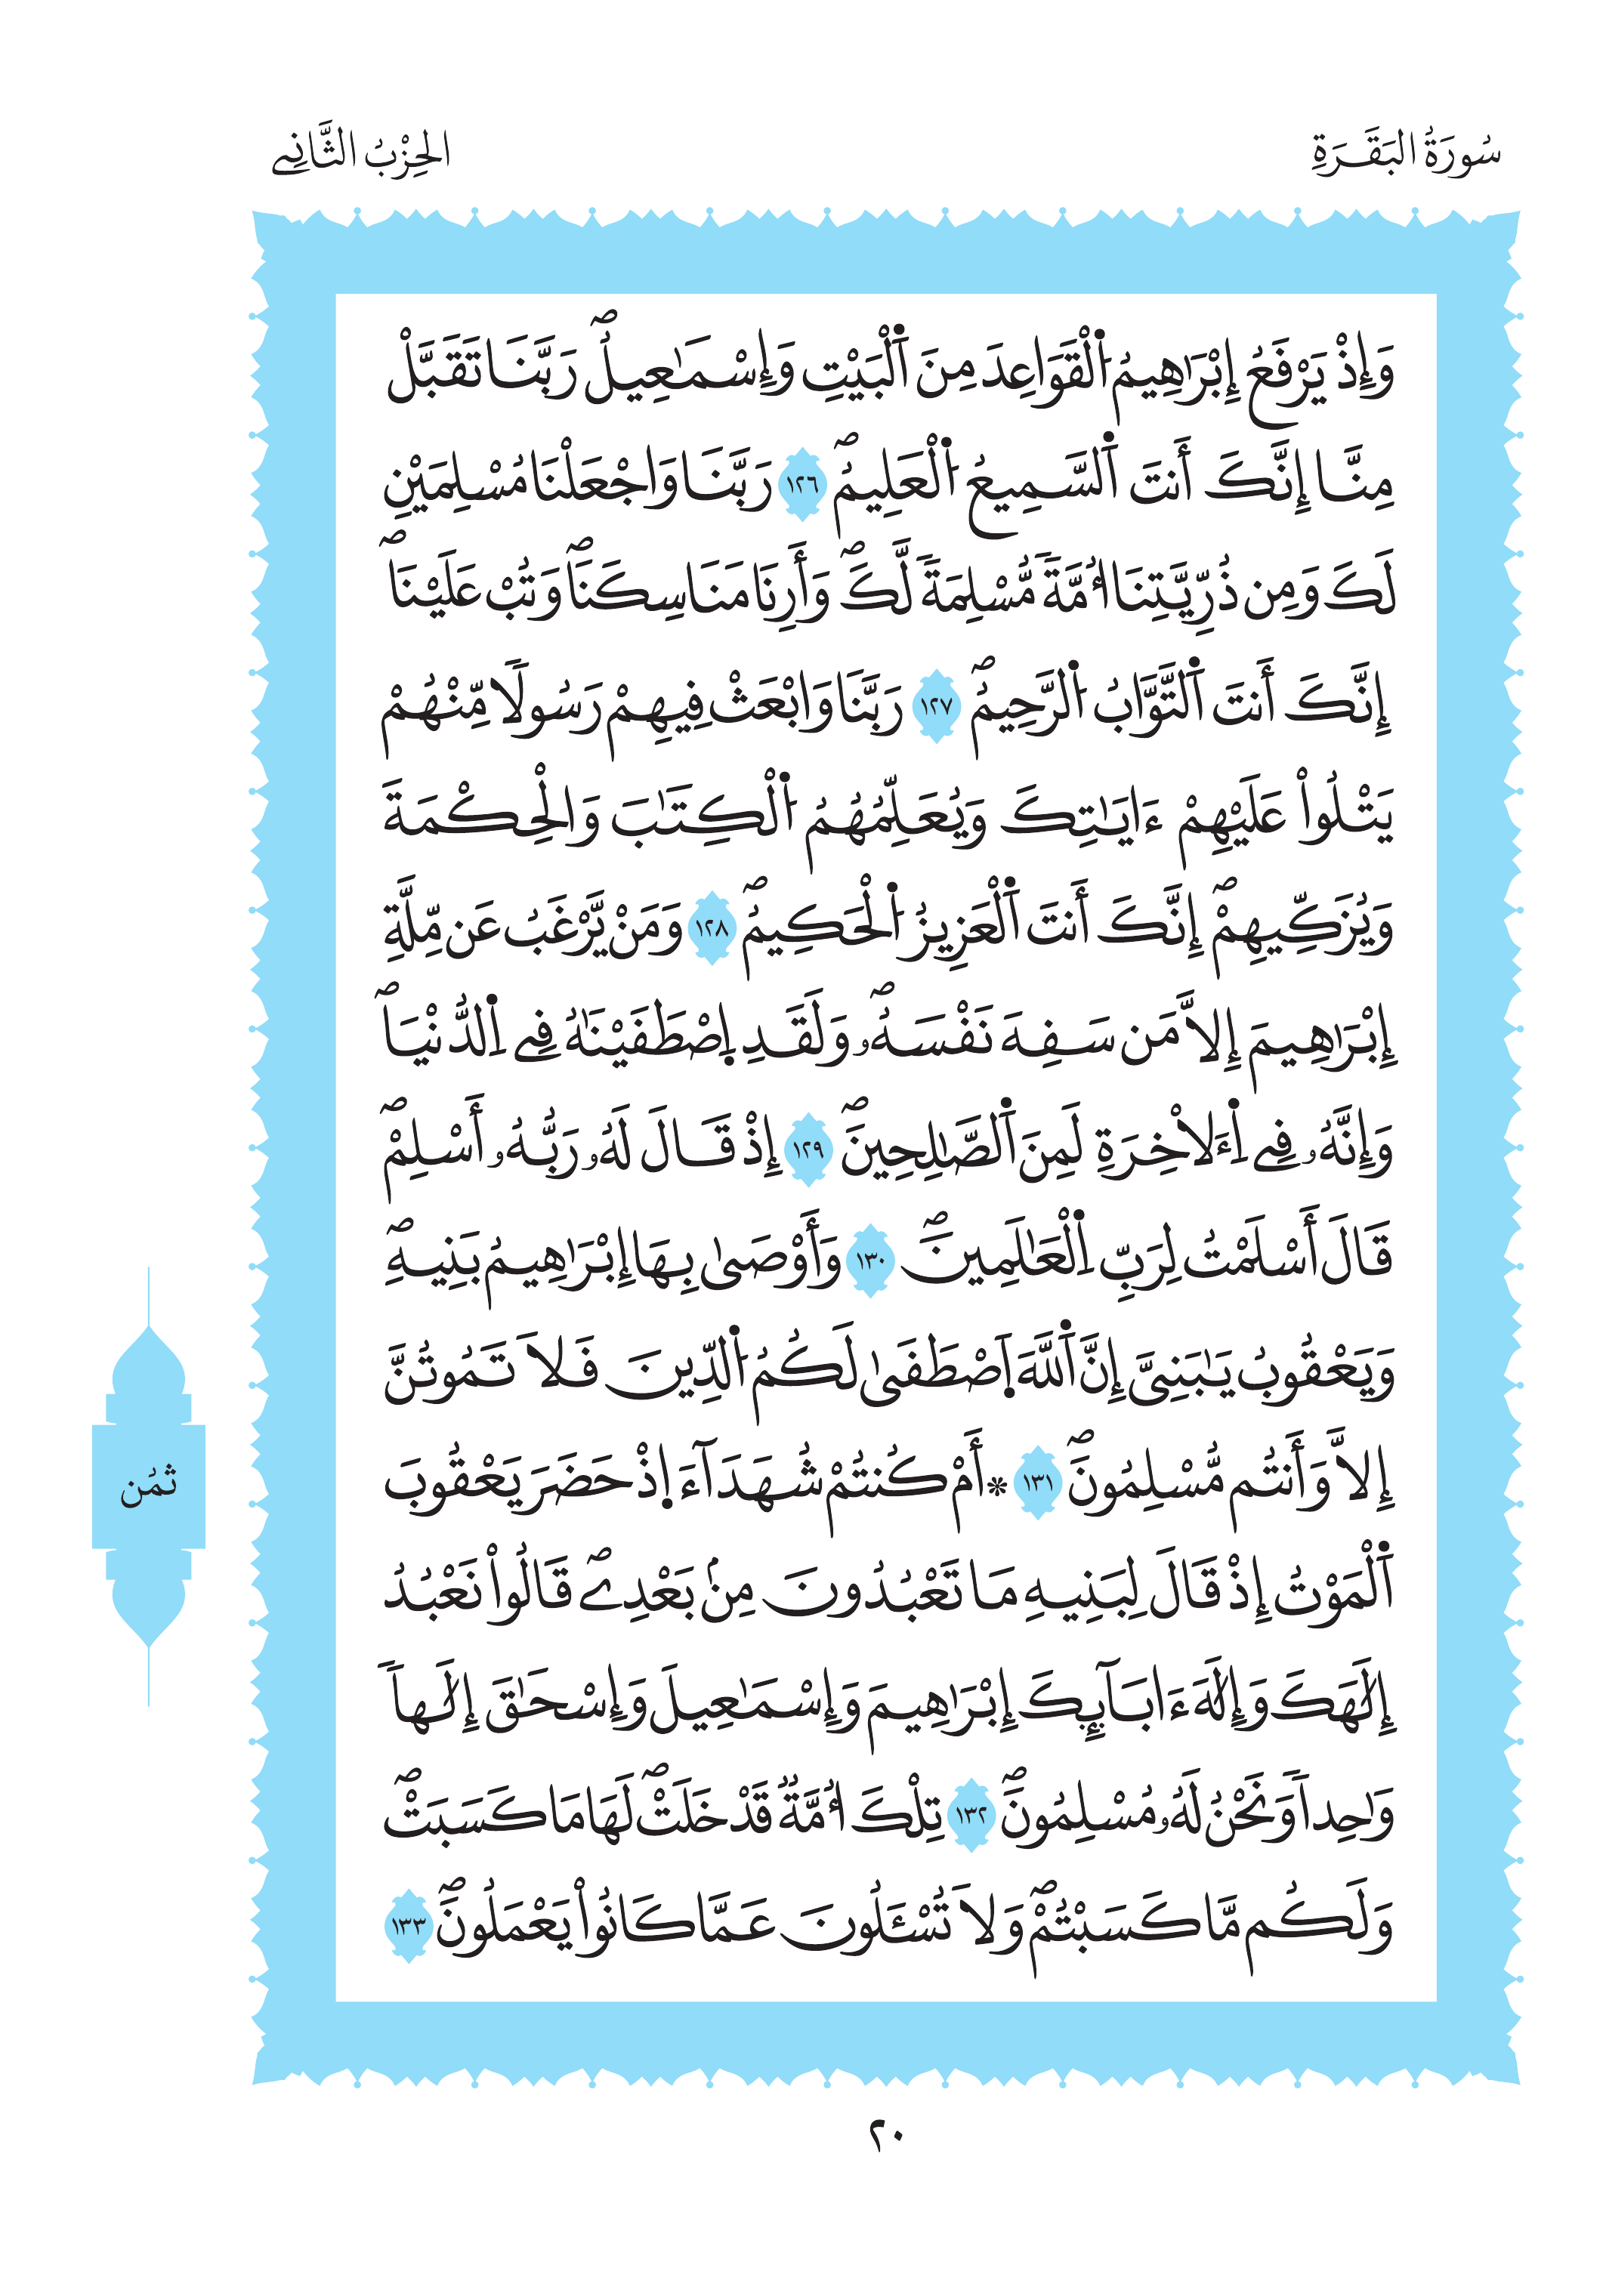 سُورَةُ البَقَرَةِ
الحِزْبُ الثَّانِے
وَإِذْ يَرْفَعُ إِبْرَٰهِيمُ اُ۬لْقَوَاعِدَ مِنَ اَ۬لْبَيْتِ وَإِسْمَٰعِيلُۖ رَبَّنَا تَقَبَّلْ
مِنَّا إِنَّكَ أَنتَ اَ۬لسَّمِيعُ اُ۬لْعَلِيمُۖ ١٢٦ رَبَّنَا وَاجْعَلْنَا مُسْلِمَيْنِ
لَكَ وَمِن ذُرِّيَّتِنَا أُمَّةٗ مُّسْلِمَةٗ لَّكَۖ وَأَرِنَا مَنَاسِكَنَاۖ وَتُبْ عَلَيْنَاۖ
إِنَّكَ أَنتَ اَ۬لتَّوَّابُ اُ۬لرَّحِيمُۖ ١٢٧ رَبَّنَا وَابْعَثْ فِيهِمْ رَسُولاٗ مِّنْهُمْ
يَتْلُواْ عَلَيْهِمْ ءَايَٰتِكَ وَيُعَلِّمُهُمُ اُ۬لْكِتَٰبَ وَالْحِكْمَةَ
وَيُزَكِّيهِمْۖ إِنَّكَ أَنتَ اَ۬لْعَزِيزُ اُ۬لْحَكِيمُۖ ١٢٨ وَمَنْ يَّرْغَبُ عَن مِّلَّةِ
إِبْرَٰهِيمَ إِلاَّ مَن سَفِهَ نَفْسَهُۥۖ وَلَقَدِ اِ۪صْطَفَيْنَٰهُ فِے اِ۬لدُّنْيَاۖ
وَإِنَّهُۥ فِے اِ۬ءَلاْخِرَةِ لَمِنَ اَ۬لصَّٰلِحِينَۖ ١٢٩ إِذْ قَالَ لَهُۥ رَبُّهُۥ أَسْلِمْۖ
قَالَ أَسْلَمْتُ لِرَبِّ اِ۬لْعَٰلَمِينَۖ ١٣٠ وَأَوْصَىٰ بِهَا إِبْرَٰهِيمُ بَنِيهِۖ
وَيَعْقُوبُ يَٰبَنِيَّ إِنَّ اَ۬للَّهَ اَ۪صْطَفَىٰ لَكُمُ اُ۬لدِّينَ فَلاَ تَمُوتُنَّ
إِلاَّ وَأَنتُم مُّسْلِمُونَۖ ١٣١ * أَمْ كُنتُمْ شُهَدَآءَ اِ۪ذْ حَضَرَ يَعْقُوبَ
اَ۬لْمَوْتُ إِذْ قَالَ لِبَنِيهِ مَا تَعْبُدُونَ مِنۢ بَعْدِےۖ قَالُواْ نَعْبُدُ
إِلَٰهَكَ وَإِلَٰهَ ءَابَآئِكَ إِبْرَٰهِيمَ وَإِسْمَٰعِيلَ وَإِسْحَٰقَ إِلَٰهاٗ
وَٰحِداٗ وَنَحْنُ لَهُۥ مُسْلِمُونَۖ ١٣٢ تِلْكَ أُمَّةٞ قَدْ خَلَتْۖ لَهَا مَا كَسَبَتْۖ
وَلَكُم مَّا كَسَبْتُمْۖ وَلاَ تُسْـَٔلُونَ عَمَّا كَانُواْ يَعْمَلُونَۖ ١٣٣
ثمُن
٢٠